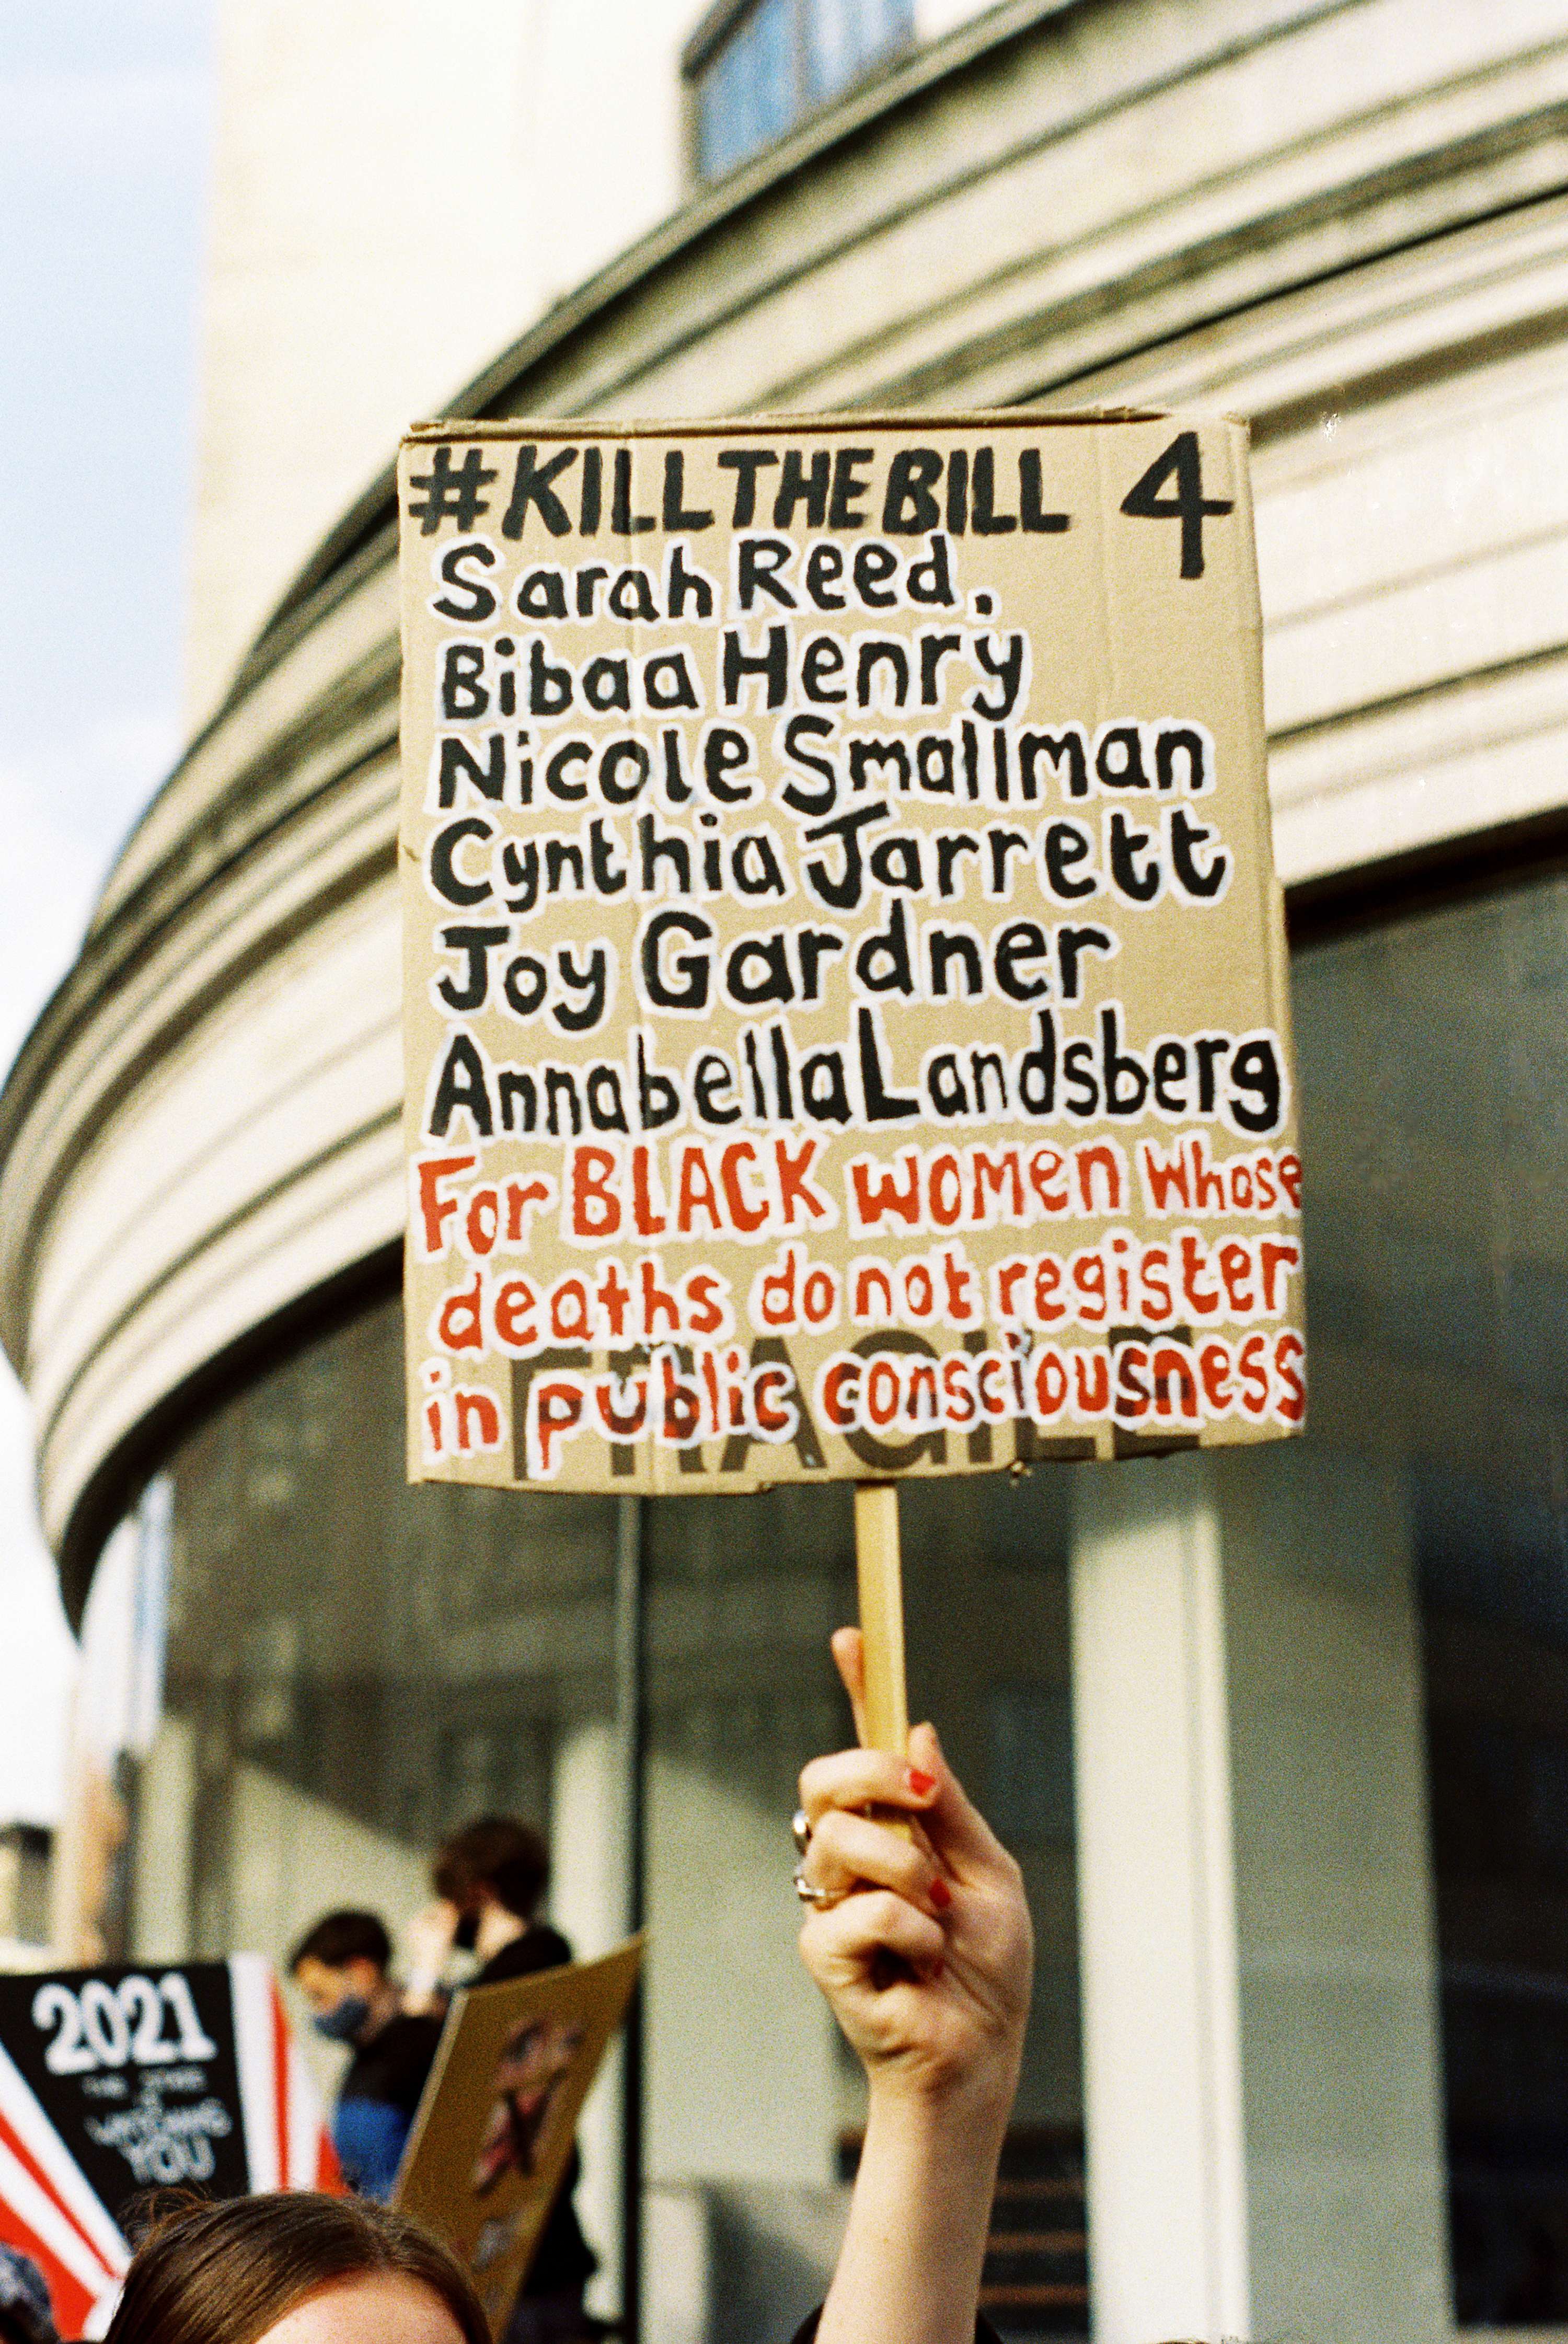 #KILLTHEBILL 4
Sarah Reed.
Bibaa Henry
Nicole Smallman
Cynthia Jarrett
Joy Gardner
Annabella Landsberg
For BLACK women whose
deaths do not register
in public consciousness
FRAGILE
2021
YOU